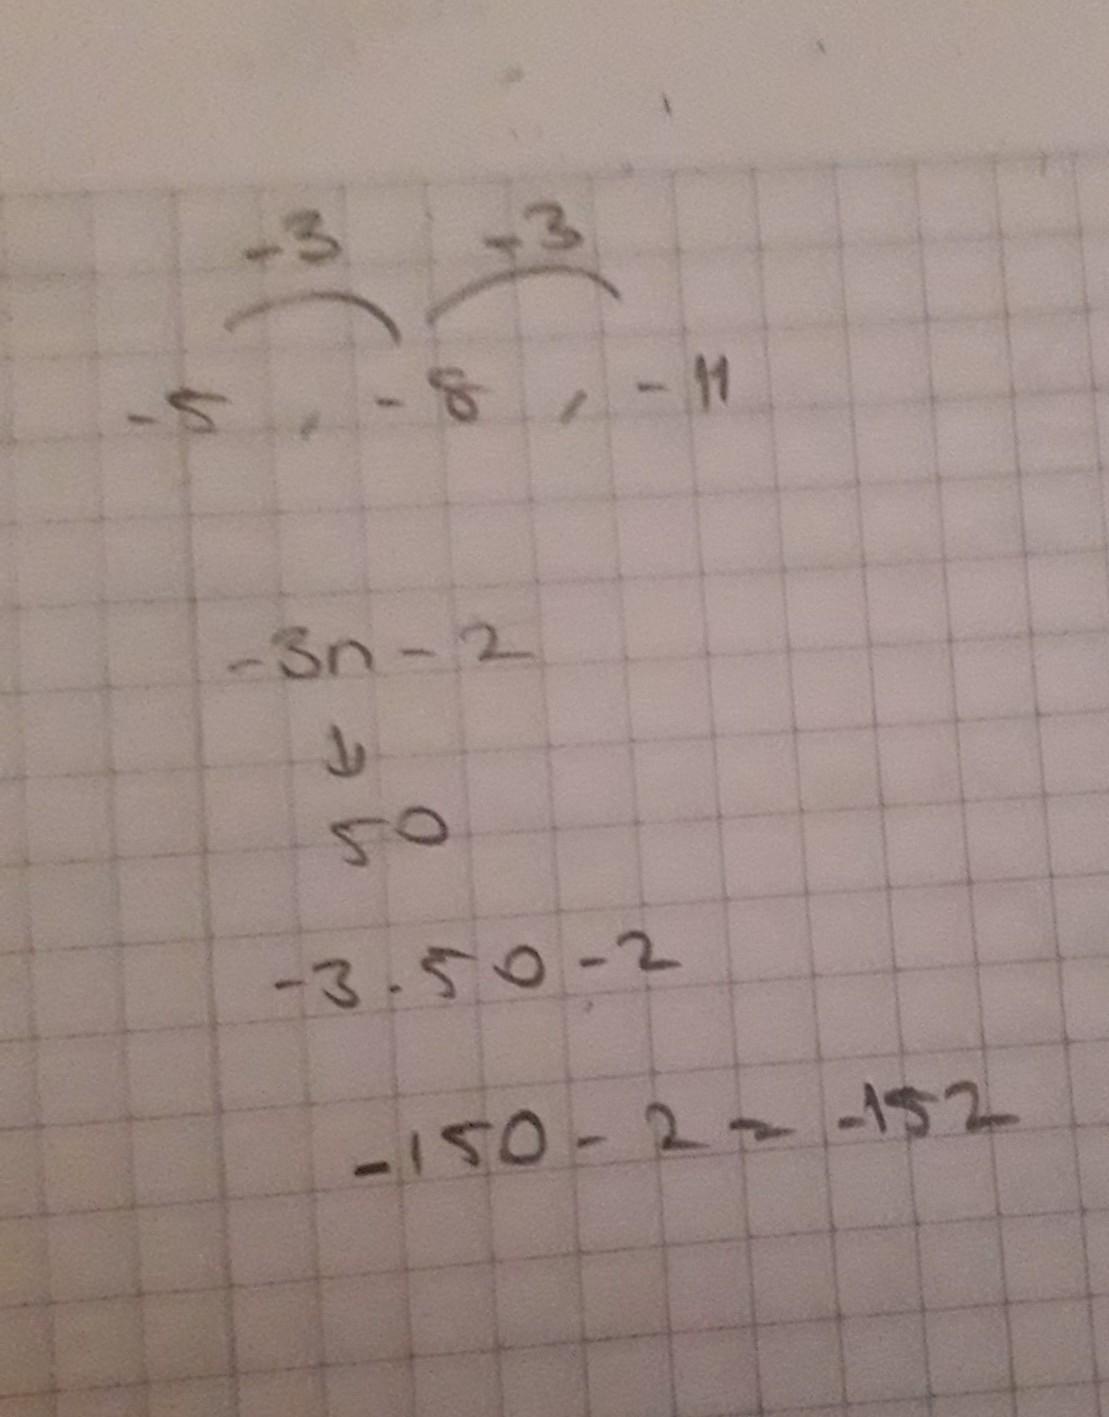 -3 -3
-5 , -8 , -11
-3n - 2
↓
50
-3 . 50 - 2
-150 - 2 = -152